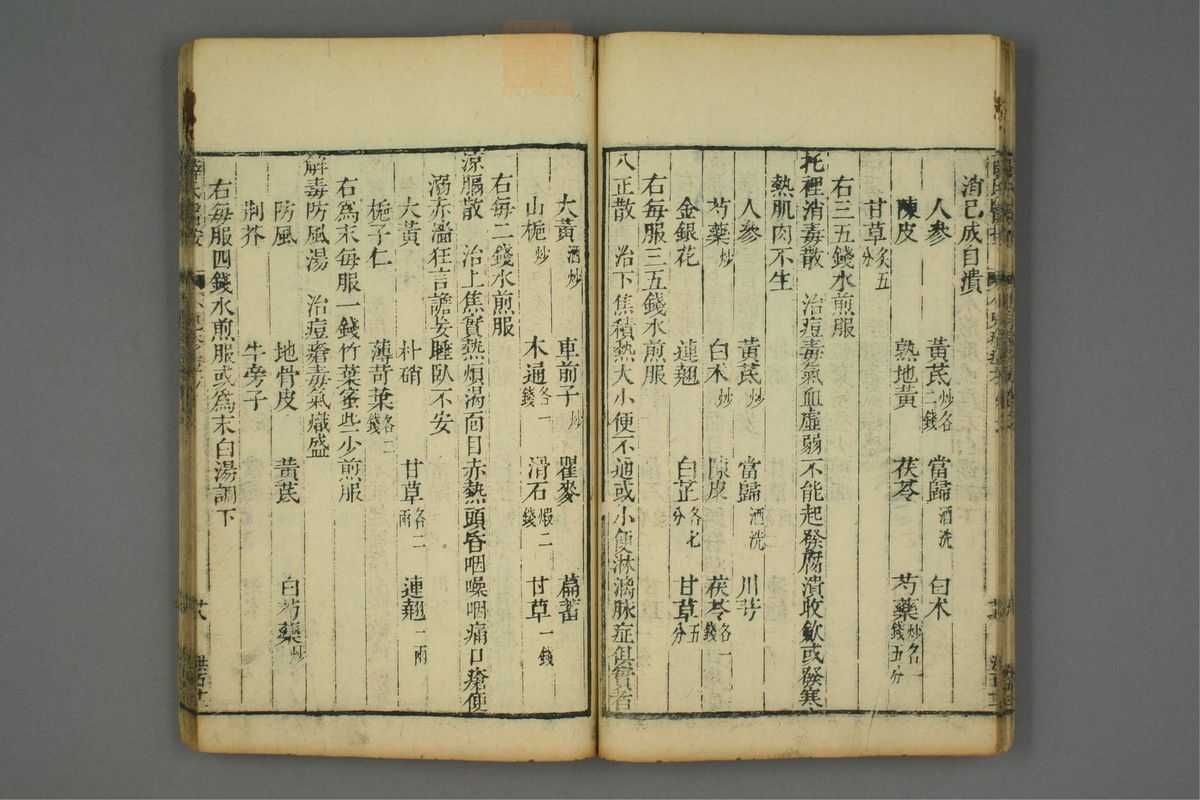 消已成自潰
人參 黃芪炒各二錢 當歸酒洗 白术
陳皮 熟地黃 茯苓 芍藥炒各一錢五分
甘草炙五分
右三五錢水煎服
托裡消毒散 治痘毒氣血虛弱不能起發腐潰收斂或發寒
熱肌肉不生
人參 黃芪炒 當歸酒洗 川芎
芍藥炒 白术炒 陳皮 茯苓各一錢
金銀花 連翹 白芷各七分 甘草五分
右每服三五錢水煎服
八正散 治下焦積熱大小便不通或小便淋漓脉症俱實者
大黃酒炒 車前子炒 瞿麥 萹蓄
山梔炒 木通各一錢 滑石煆二錢 甘草一錢
右每二錢水煎服
涼膈散 治上焦實熱煩渴面目赤熱頭昏咽噪咽痛口瘡便
溺赤濇狂言譫妄睡臥不安
大黃 朴硝 甘草各二兩 連翹一兩
梔子仁 薄苛葉各二錢
右為末每服一錢竹葉蜜些少煎服
解毒防風湯 治痘瘡毒氣熾盛
防風 地骨皮 黃芪 白芍藥炒
荆芥 牛旁子
右每服四錢水煎服或為末白湯調下